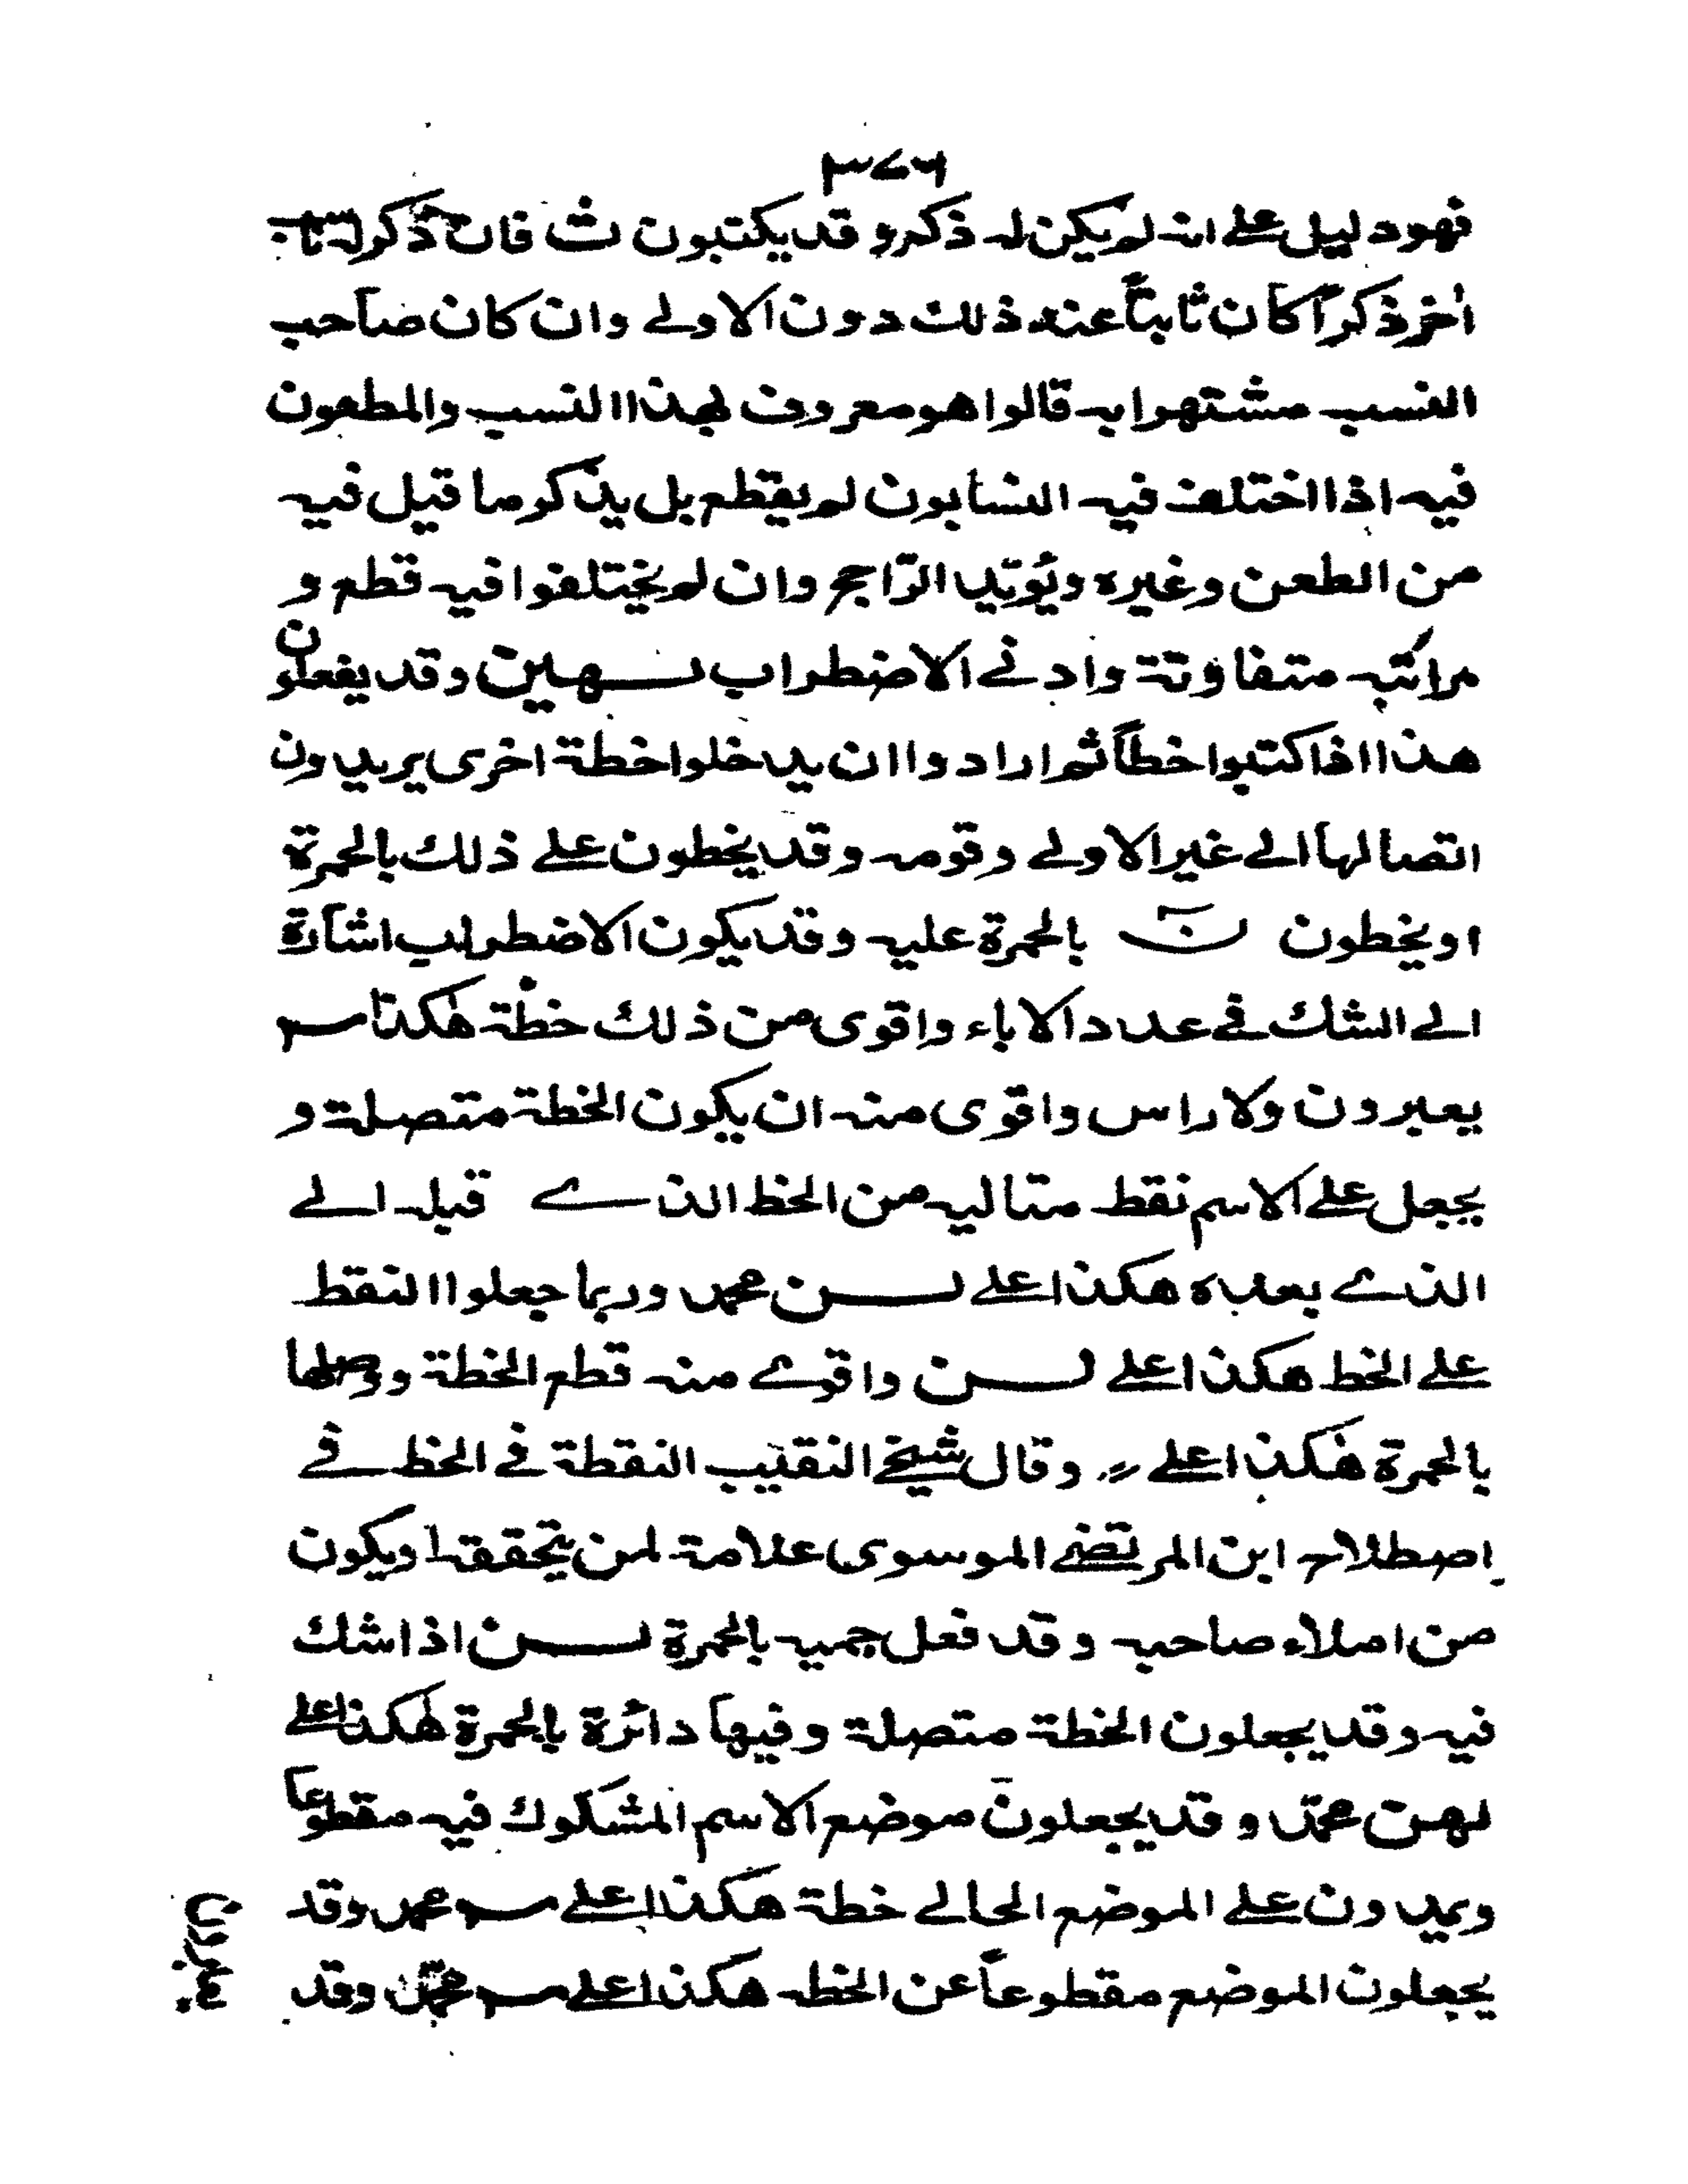 ٣٧٦
فهو دليل على انه لم يكن له ذكر و قد يكتبون ث فان ذكر له
اخر ذكراً كان ثابتاً عند ذلك دون الاولى وان كان صاحب
النسب مشتهرا به قالوا هو معروف بهذا النسب والمطعون
فيه اذا اختلف فيه النسابون لم يقطع بل يذكر ما قيل فيه
من الطعن وغيره ويؤيد الراجح وان لم يختلفوا فيه قطع و
مراتبه متفاوتة وادنى الاضطراب وقد يفعلون
هذا اذا كتبوا خطاً ثم ارادوا ان يدخلوا خطة اخرى يريدون
اتصالها الى غير الاولى وقومه وقد يخطون على ذلك بالحمرة
او يخطون بالحمرة عليه وقد يكون الاضطراب اشارة
الى الشك في عدد الاباء واقوى من ذلك خطة هكذا
يعبرون ولا راس واقوى منه ان يكون الخطة متصلة و
يجعل على الاسم نقط متاليه من الخط الذى قبله الى
الذى بعده هكذا على بن محمد وربما جعلوا النقط
على الخط هكذا على بن واقوى منه قطع الخطة ووصلها
بالحمرة هكذا على وقال شيخ النقيب النقطة في الخط في
اصطلاح ابن المرتضى الموسوى علامة لمن يتحققه او يكون
من املاء صاحبه وقد فعل جميه بالحمرة بن اذا شك
فيه وقد يجعلون الخطة متصلة وفيها دائرة بالحمرة هكذا على
محمد و قد يجعلون موضع الاسم المشكوك فيه مقطوعا
ويمدون على الموضع الحالى خطة هكذا على محمد وقد
يجعلون الموضع مقطوعاً عن الخط هكذا على محمد وقد